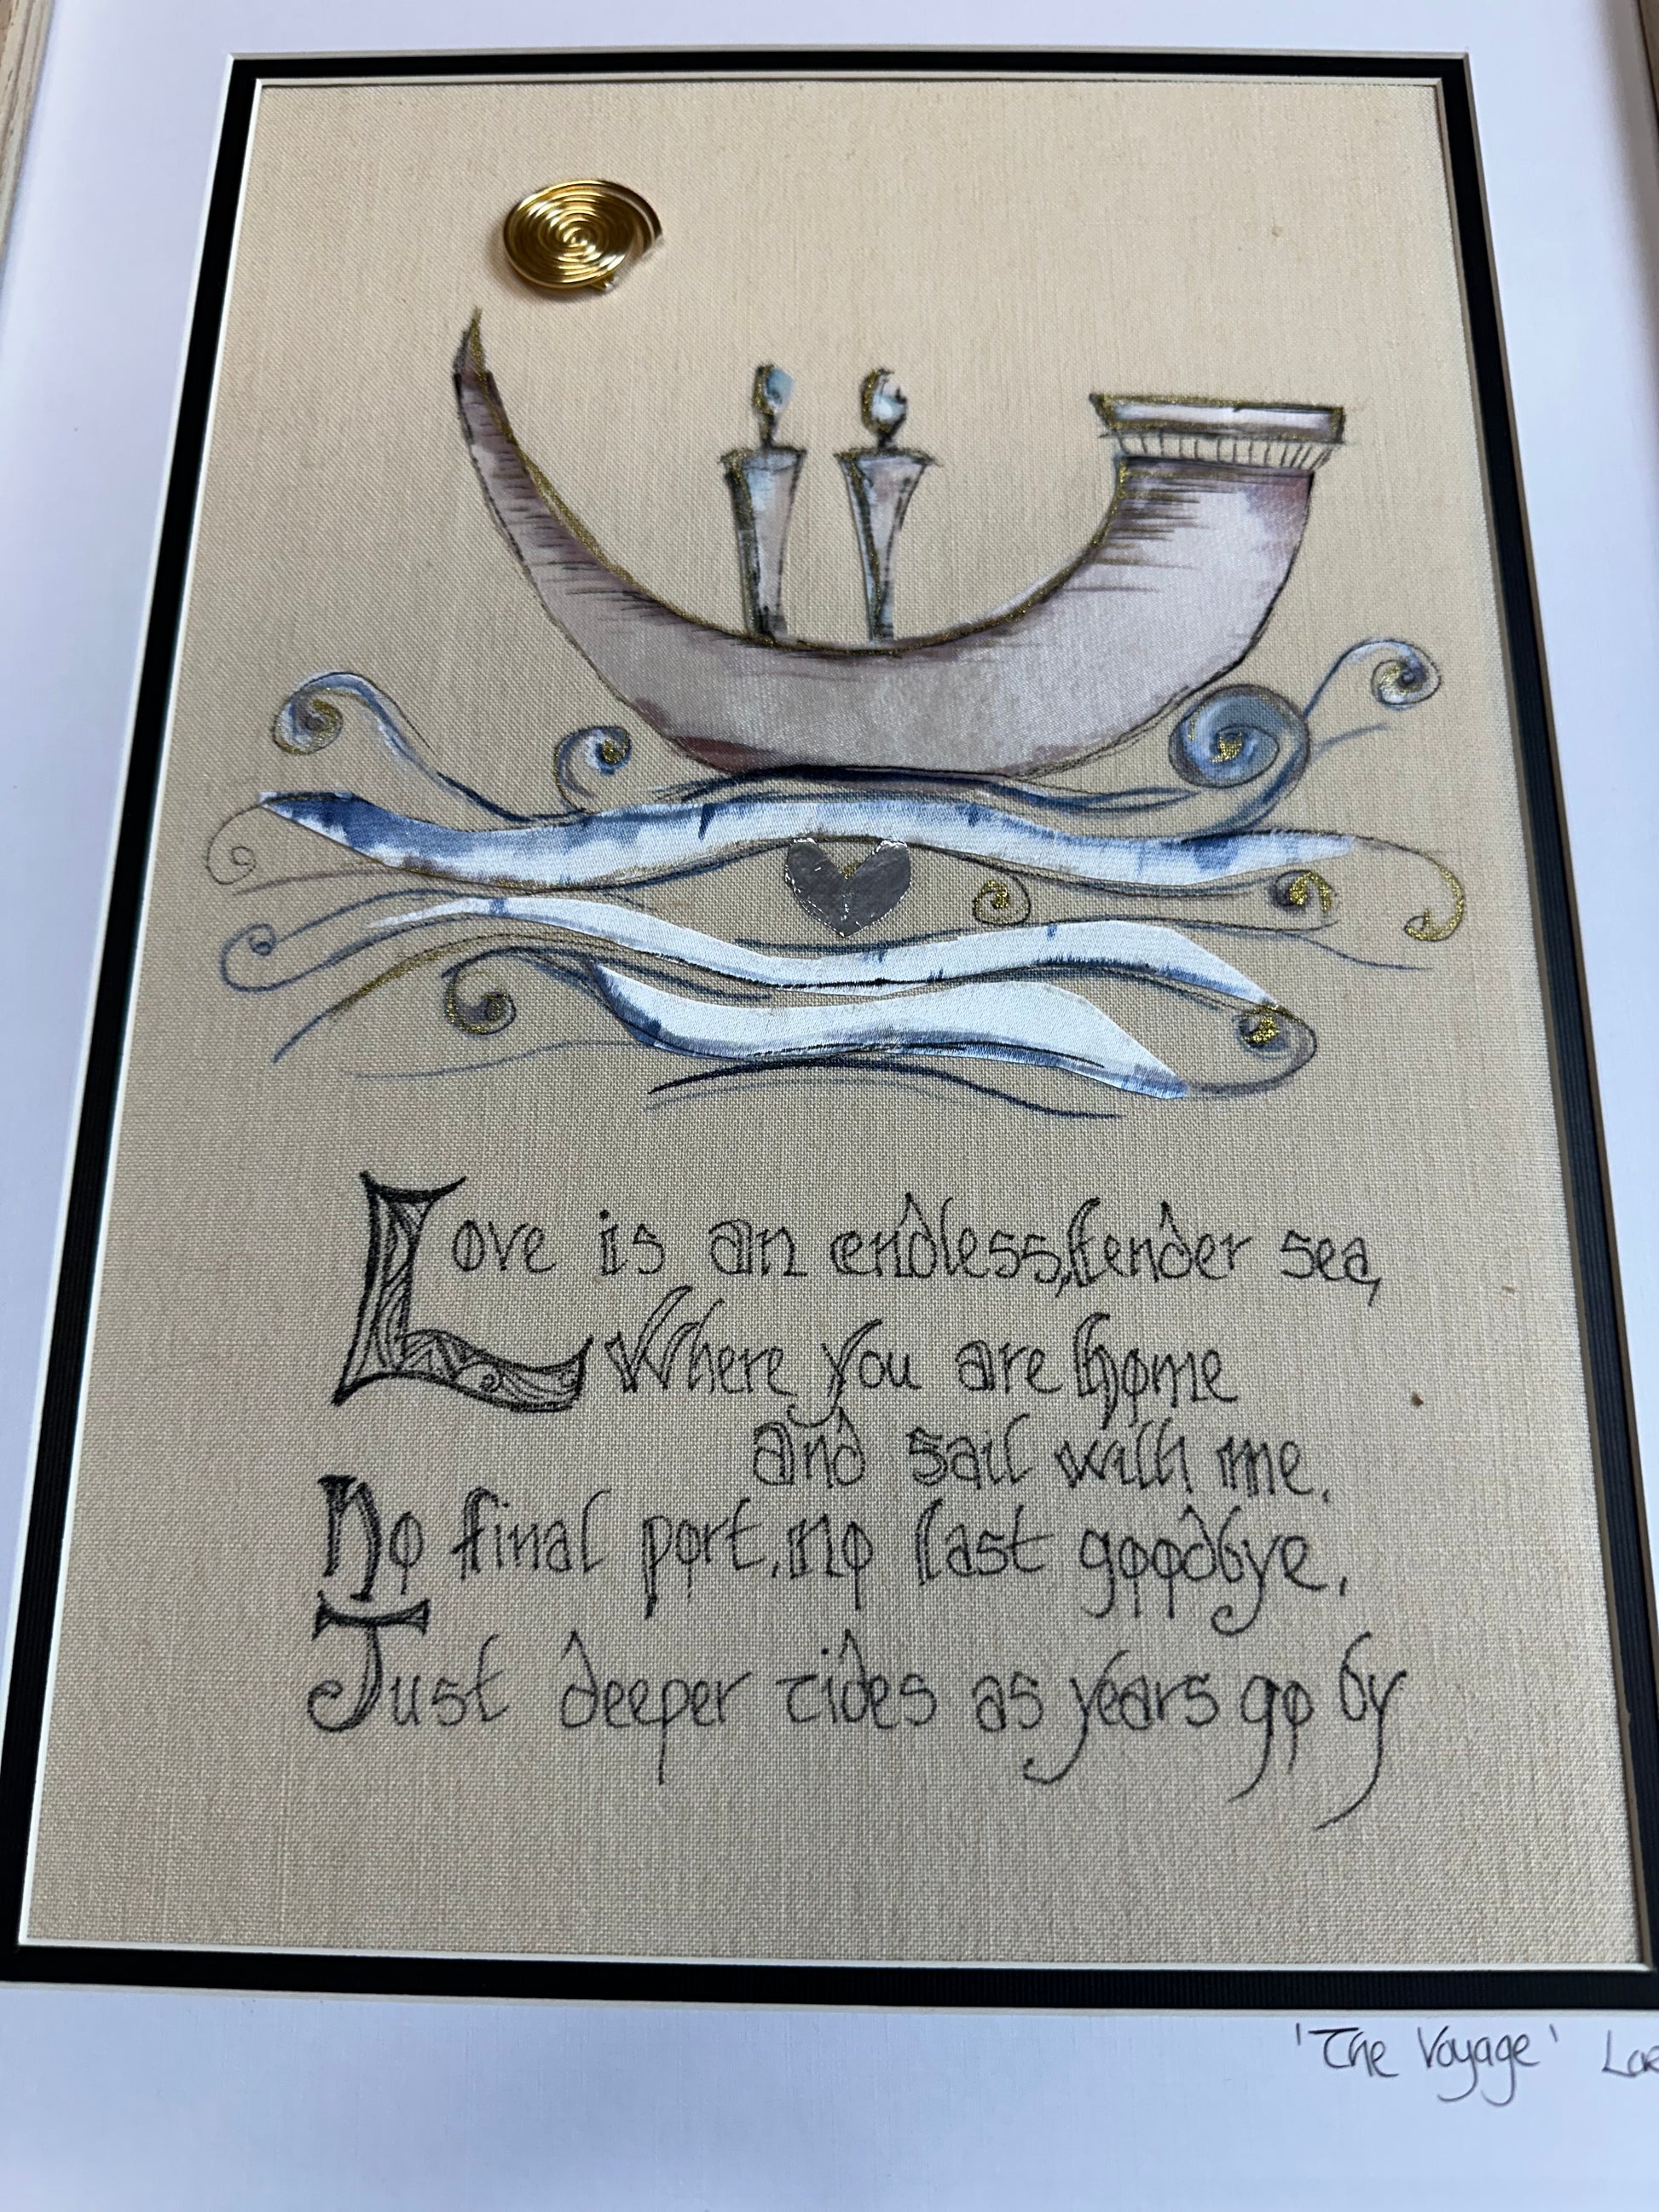 Love is an endless, tender sea,
Where you are home
and sail with me.
No final port, no last goodbye.
Just deeper tides as years go by
'The Voyage'